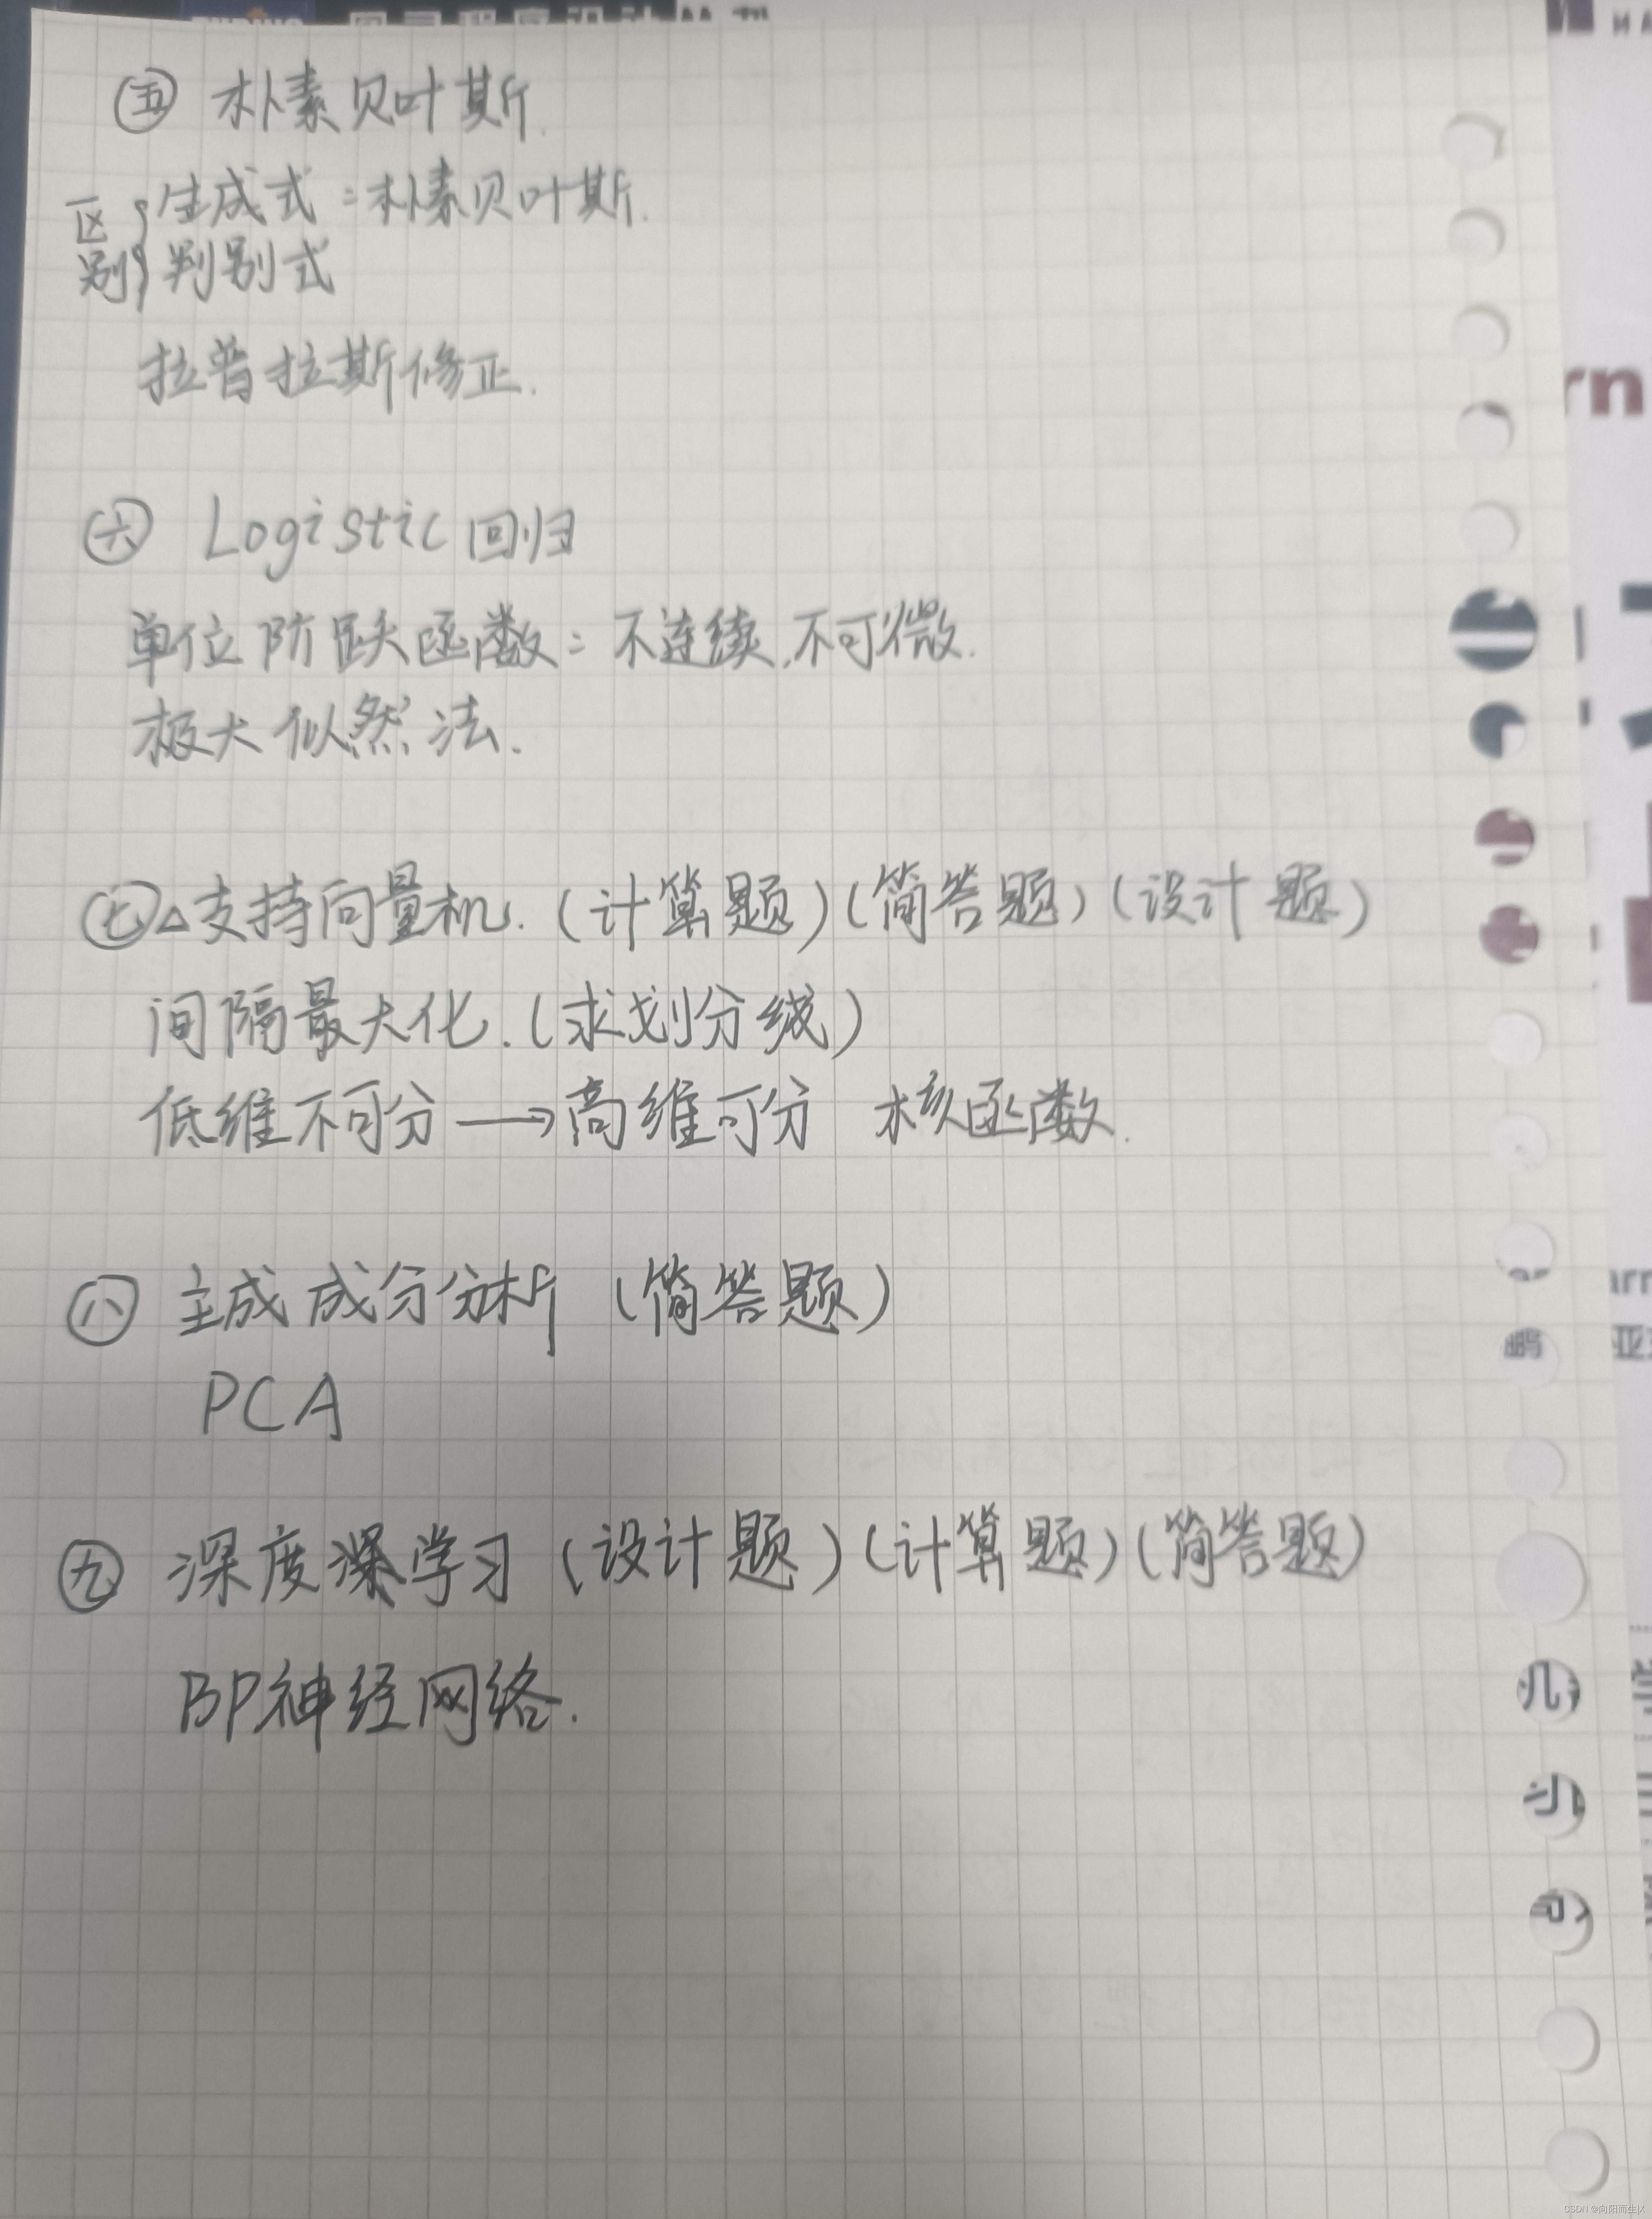 ㊄ 朴素贝叶斯.
区别{生成式：朴素贝叶斯.
判别式
拉普拉斯修正.
㊅ Logistic回归
单位阶跃函数：不连续,不可微.
极大似然法.
㊆△支持向量机.(计算题)(简答题)(设计题)
间隔最大化.(求划分线)
低维不可分→高维可分 核函数.
㊇ 主成成分分析 (简答题)
PCA
㊈ 深度学习 (设计题)(计算题)(简答题)
BP神经网络.
CSDN @向阳而生|X